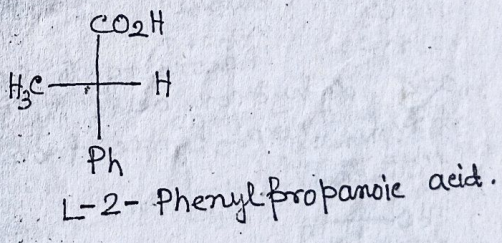 CO2H
H3C H
Ph
L-2-Phenylpropanoic acid.